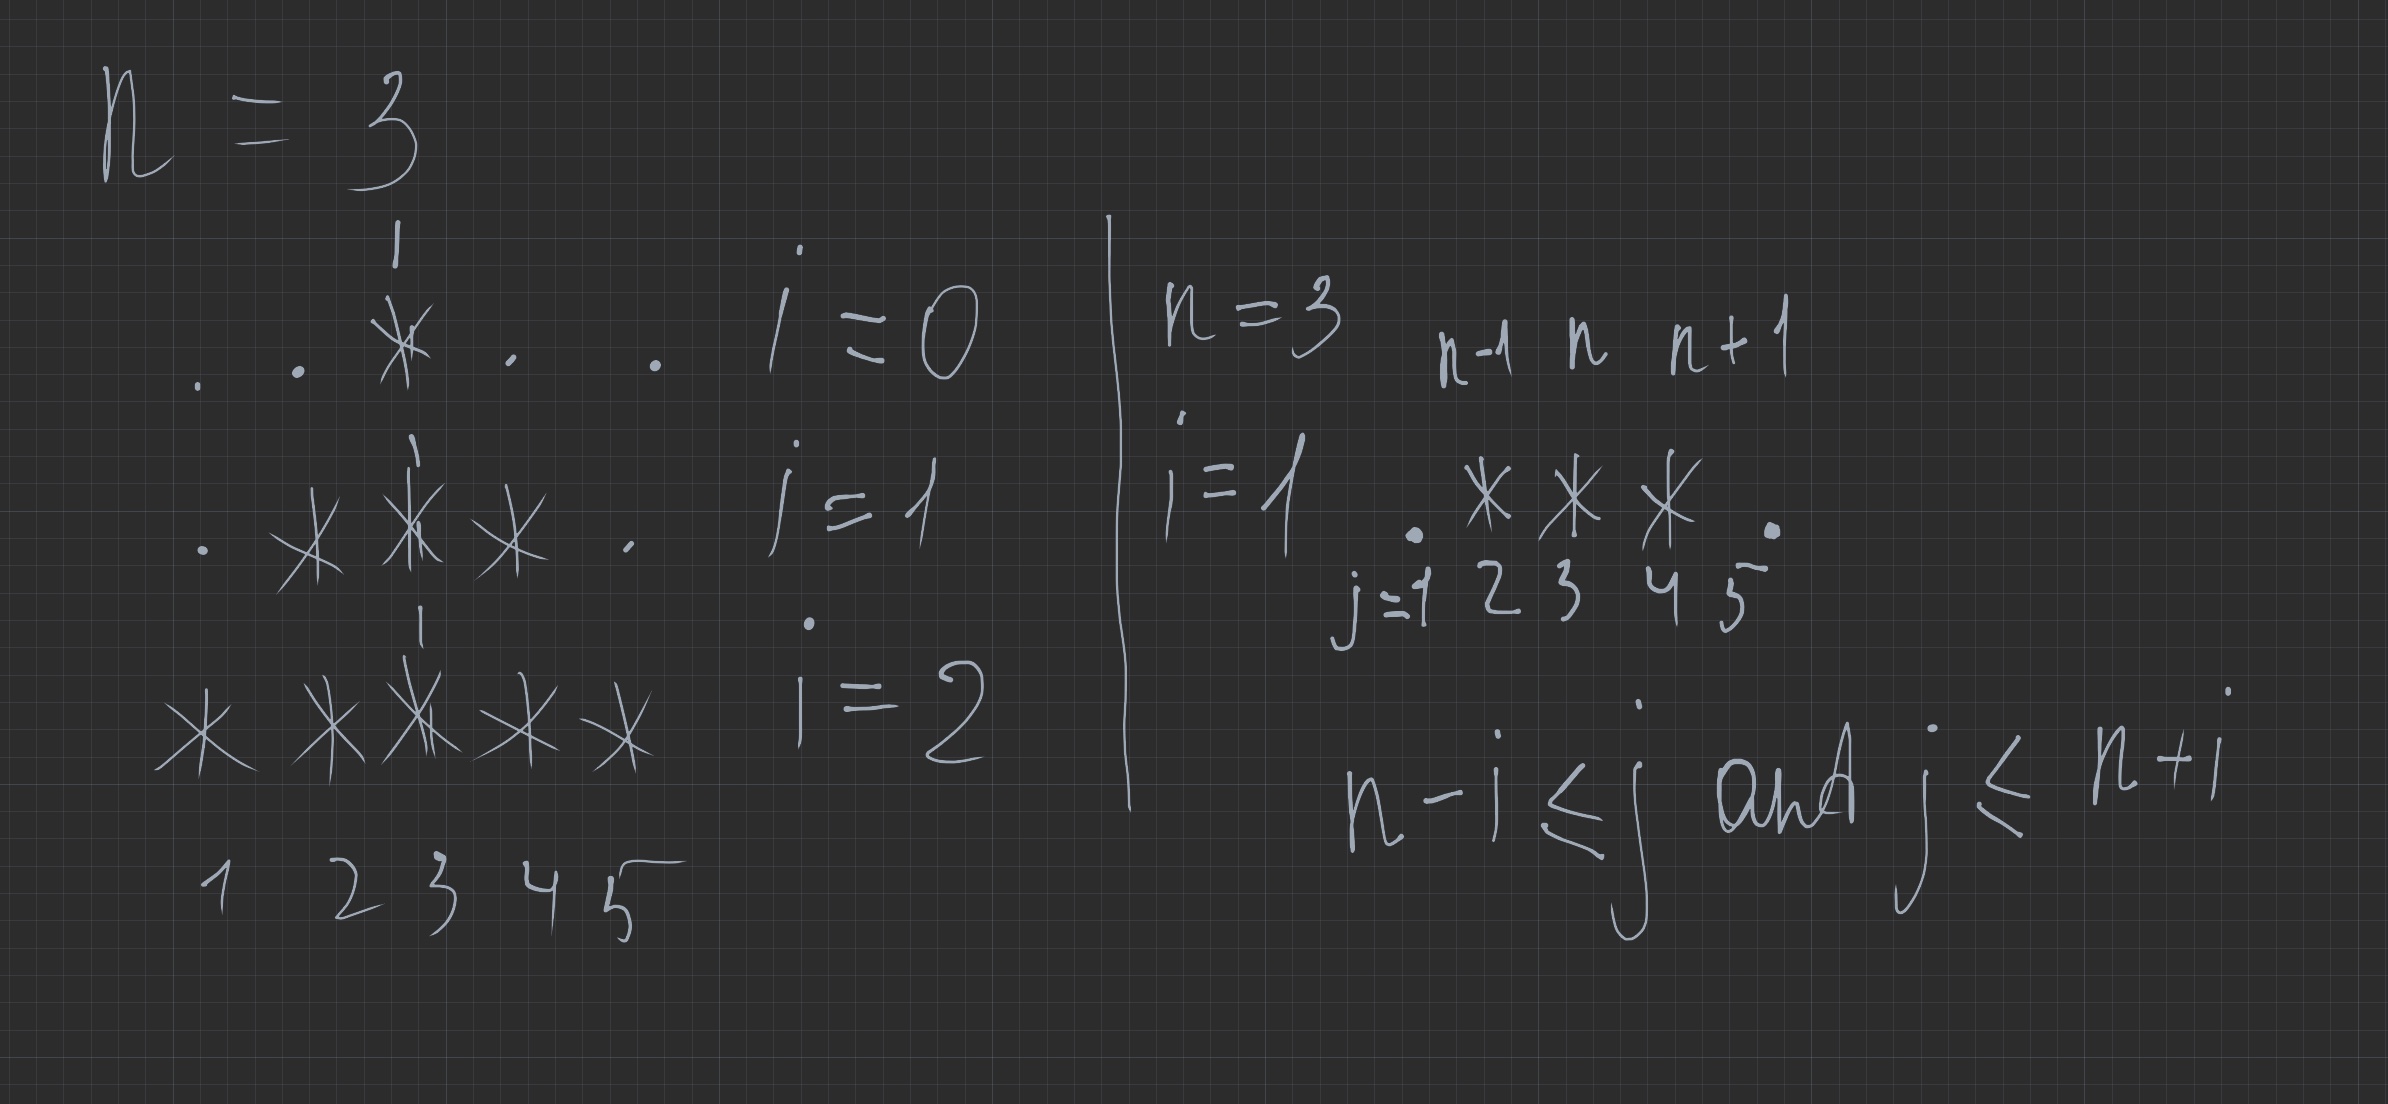 n = 3
. . * . . i = 0
. * * * . i = 1
* * * * * i = 2
1 2 3 4 5
n = 3
n-1 n n+1
i = 1 . * * * .
j=1 2 3 4 5
n - i ≤ j and j ≤ n + i